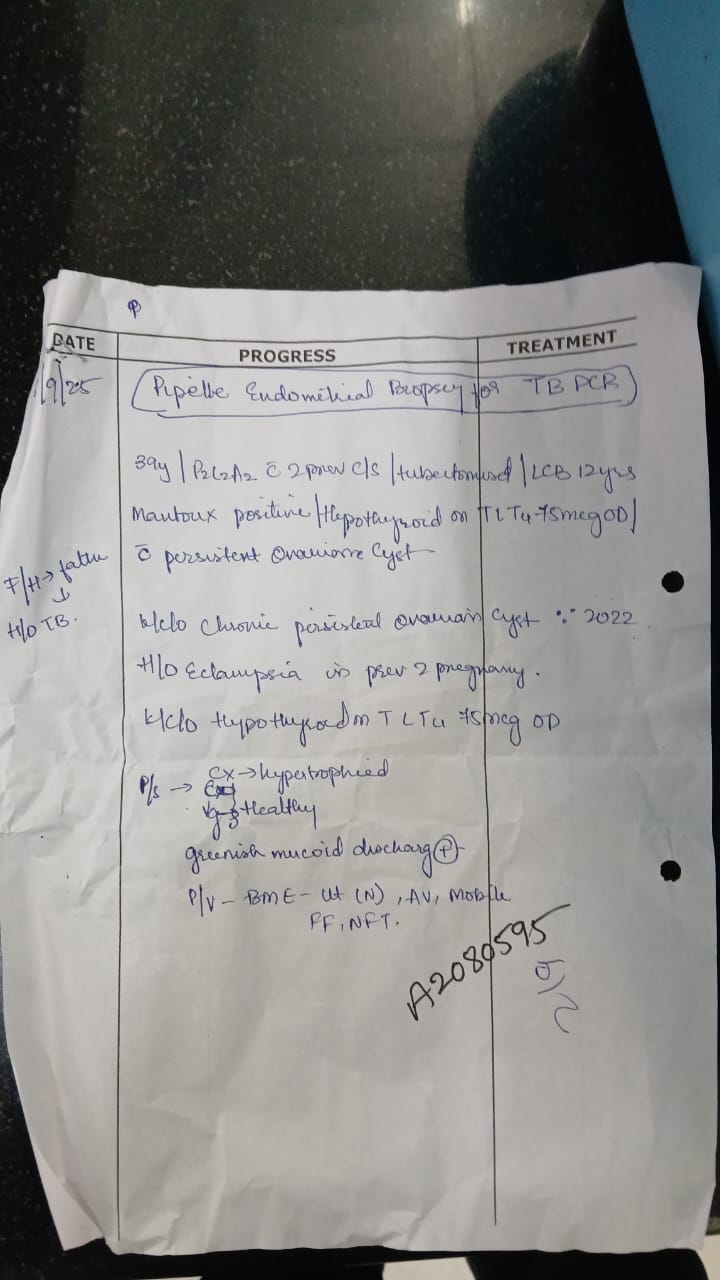 DATE PROGRESS TREATMENT
/9/25 Pipelle Endometrial Biopsy for TB PCR
39y / P2L2A2 c̄ 2 prev C/S / tubectomised / LCB 12yrs
Mantoux positive / Hypothyroid on T LT4 75mcg OD /
c̄ persistent Ovarian Cyst
F/H → father
↓
H/O TB.
k/c/o Chronic persistent ovarian Cyst ∵ 2022
H/O Eclampsia in prev 2 pregnancy.
k/c/o Hypothyroid on T LT4 75mcg OD
P/s → Cx → hypertrophied
vg → Healthy
greenish mucoid discharge +
P/V - BME - Ut (N), AV, Mobile
FF, NFT.
A2080595